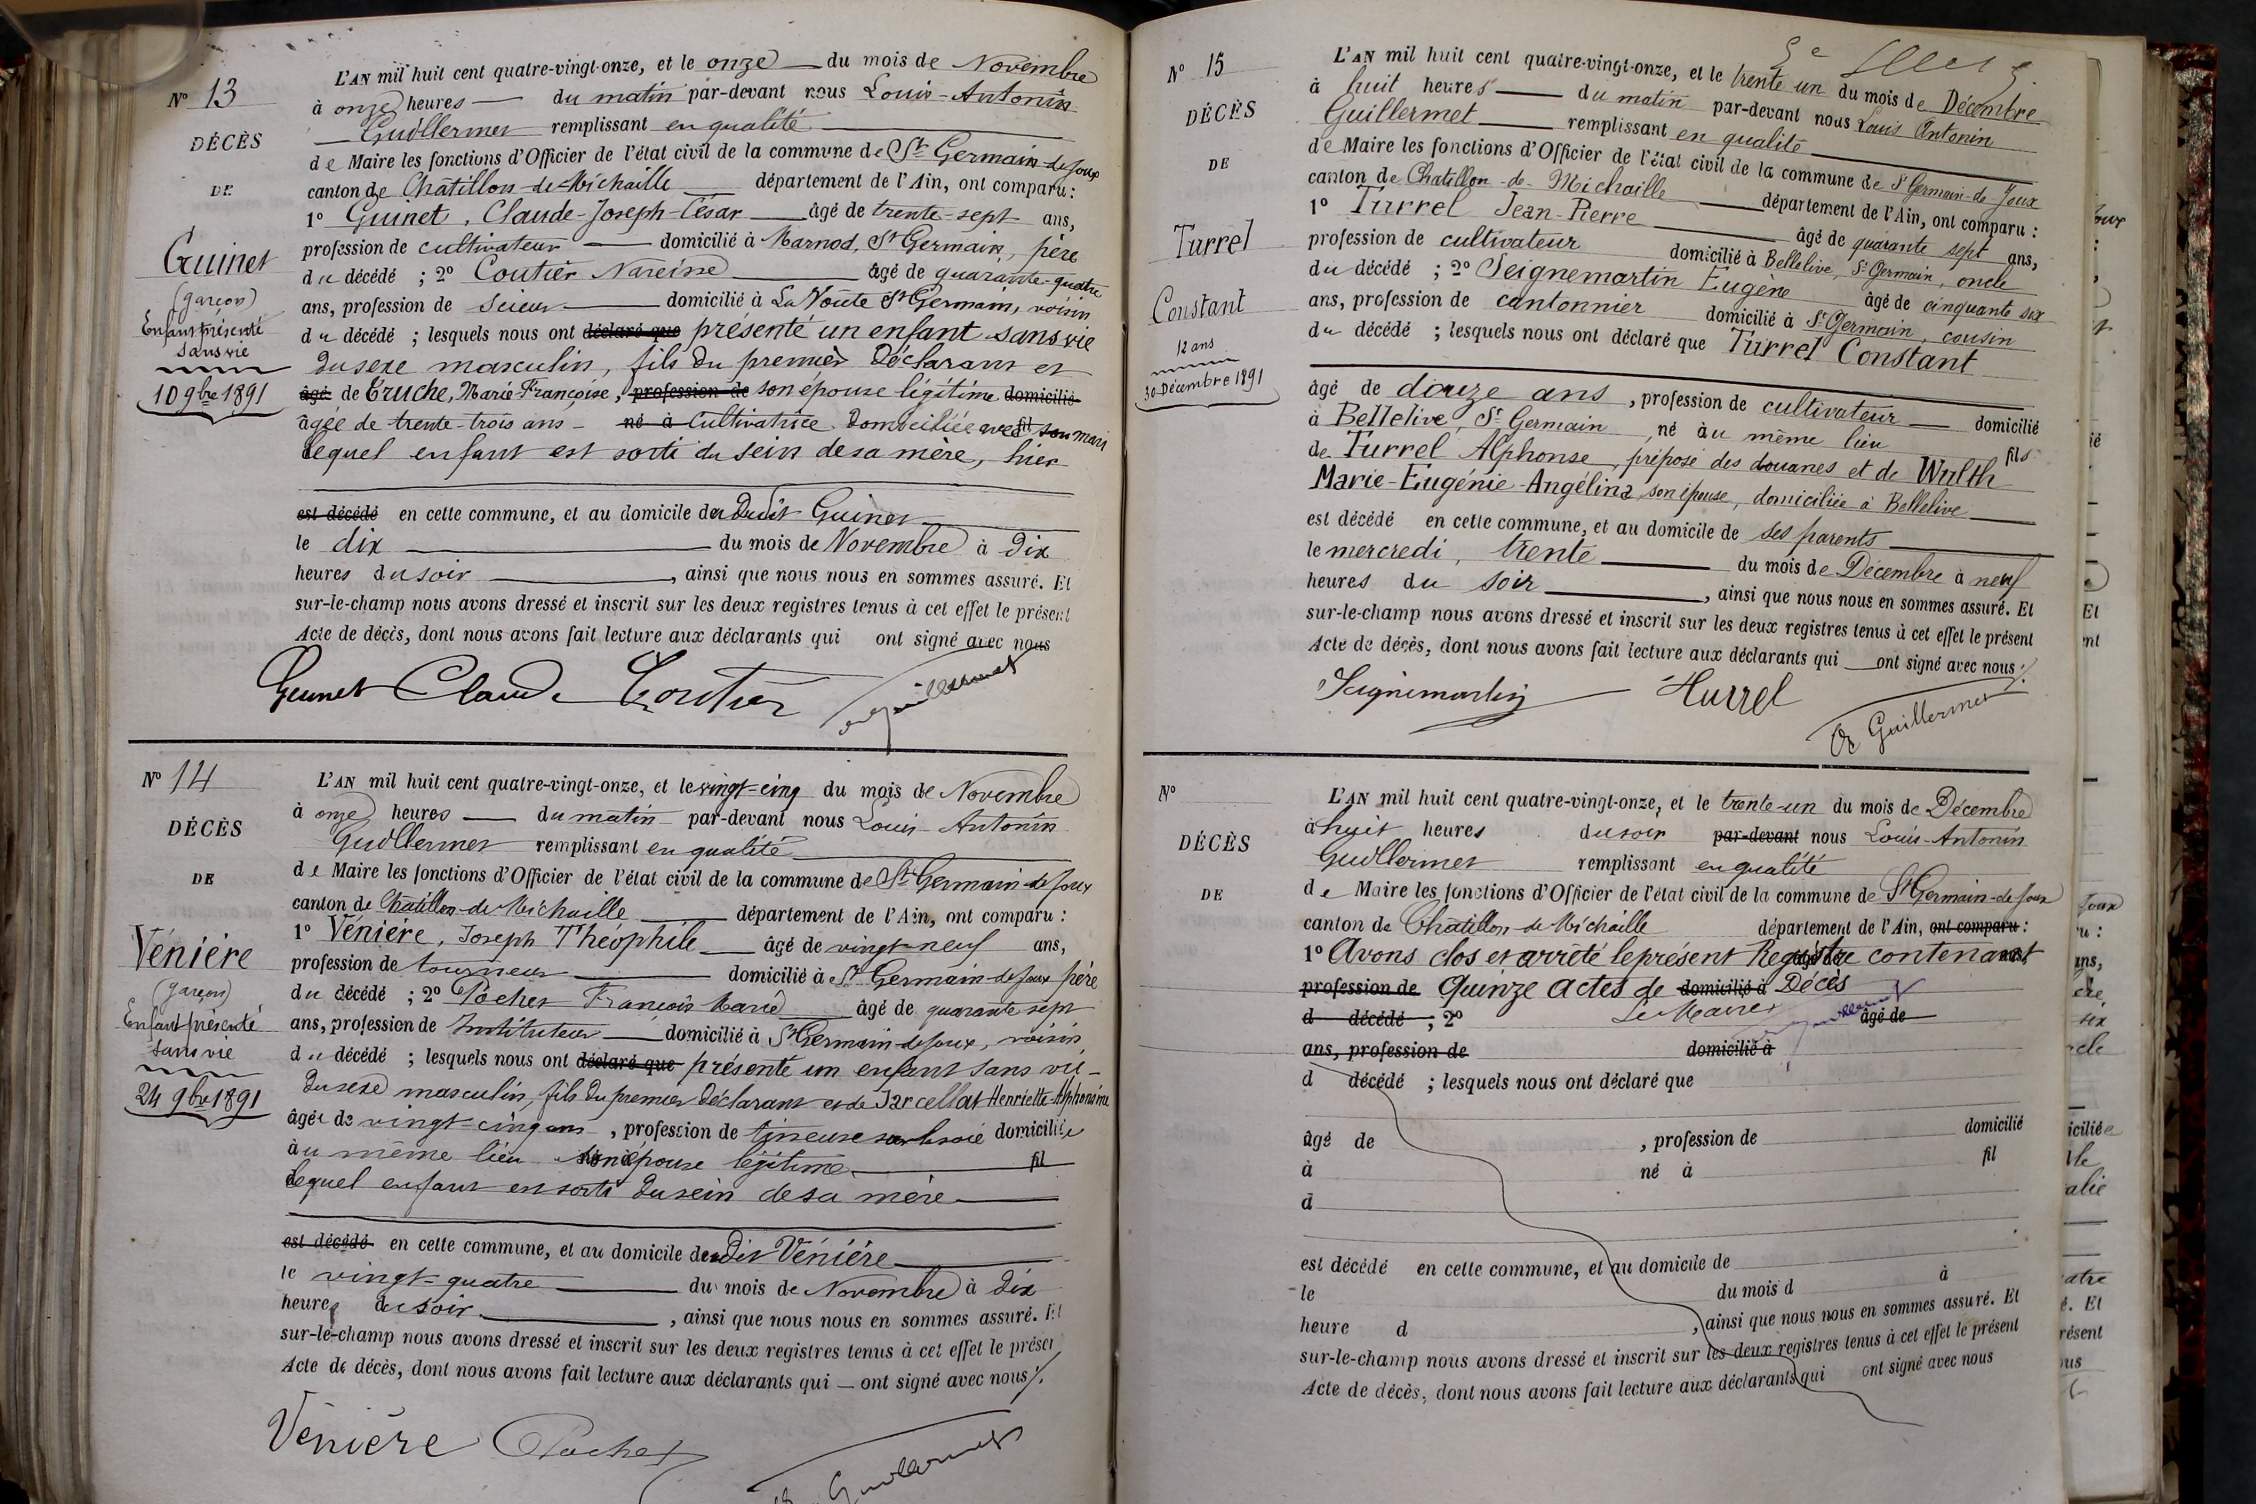 N° 13
DÉCÈS
DE
Guinet
(garçon)
Enfant présenté
sans vie
10 9bre 1891
L'AN mil huit cent quatre-vingt-onze, et le onze du mois de Novembre
à onze heures du matin par-devant nous Louis-Antonin
Guillermet remplissant en qualité
de Maire les fonctions d'Officier de l'état civil de la commune de St Germain-de-Joux
canton de Châtillon-de-Michaille département de l'Ain, ont comparu :
1° Guinet, Claude-Joseph-César âgé de trente-sept ans,
profession de cultivateur domicilié à Marnod, St Germain, père
du décédé ; 2° Coutier Narcisse âgé de quarante-quatre
ans, profession de scieur domicilié à La Voûte St Germain, voisin
du décédé ; lesquels nous ont déclaré que présenté un enfant sans vie
du sexe masculin, fils du premier déclarant et
âgé de Bruche, Marie-Françoise, profession de son épouse légitime domicilié
âgée de trente-trois ans né à cultivatrice domiciliée avec fil son mari
lequel enfant est sorti du sein de sa mère, hier
est décédé en cette commune, et au domicile du dit Guinet
le dix du mois de Novembre à dix
heures du soir, ainsi que nous nous en sommes assuré. Et
sur-le-champ nous avons dressé et inscrit sur les deux registres tenus à cet effet le présent
Acte de décès, dont nous avons fait lecture aux déclarants qui ont signé avec nous
Guinet Claude Coutier Guillermet
N° 14
DÉCÈS
DE
Vénière
(garçon)
Enfant présenté
sans vie
24 9bre 1891
L'AN mil huit cent quatre-vingt-onze, et le vingt-cinq du mois de Novembre
à onze heures du matin par-devant nous Louis-Antonin
Guillermet remplissant en qualité
de Maire les fonctions d'Officier de l'état civil de la commune de St Germain-de-Joux
canton de Châtillon-de-Michaille département de l'Ain, ont comparu :
1° Vénière, Joseph Théophile âgé de vingt-neuf ans,
profession de tourneur domicilié à St Germain-de-Joux père
du décédé ; 2° Pochet François Marie âgé de quarante sept
ans, profession de Instituteur domicilié à St Germain-de-Joux, voisin
du décédé ; lesquels nous ont déclaré que présenté un enfant sans vie
du sexe masculin, fils du premier déclarant et de Jarcellat Henriette-Alphonsine
âgée de vingt-cinq ans, profession de tisseuse sur la soie domiciliée
au même lieu son épouse légitime fil
lequel enfant est sorti du sein de sa mère
est décédé en cette commune, et au domicile du dit Vénière
le vingt-quatre du mois de Novembre à dix
heures du soir, ainsi que nous nous en sommes assuré. Et
sur-le-champ nous avons dressé et inscrit sur les deux registres tenus à cet effet le présent
Acte de décès, dont nous avons fait lecture aux déclarants qui ont signé avec nous
Vénière Pochet
Guillermet
N° 15
DÉCÈS
DE
Turrel
Constant
12 ans
30 Décembre 1891
L'AN mil huit cent quatre-vingt-onze, et le trente un du mois de Décembre
à huit heures du matin par-devant nous Louis Antonin
Guillermet remplissant en qualité
de Maire les fonctions d'Officier de l'état civil de la commune de St Germain-de-Joux
canton de Chatillon-de-Michaille département de l'Ain, ont comparu :
1° Turrel Jean-Pierre âgé de quarante sept ans,
profession de cultivateur domicilié à Bellelive, St Germain, oncle
du décédé ; 2° Seignemartin Eugène âgé de cinquante six
ans, profession de cantonnier domicilié à St Germain, cousin
du décédé ; lesquels nous ont déclaré que Turrel Constant
âgé de douze ans, profession de cultivateur domicilié
à Bellelive, St Germain, né au même lieu fils
de Turrel Alphonse, préposé des douanes et de Wulth
Marie-Eugénie-Angélina son épouse, domiciliée à Bellelive
est décédé en cette commune, et au domicile de ses parents
le mercredi, trente du mois de Décembre à neuf
heures du soir, ainsi que nous nous en sommes assuré. Et
sur-le-champ nous avons dressé et inscrit sur les deux registres tenus à cet effet le présent
Acte de décès, dont nous avons fait lecture aux déclarants qui ont signé avec nous
Seignemartin Turrel
Guillermet
N°
DÉCÈS
DE
L'AN mil huit cent quatre-vingt-onze, et le trente-un du mois de Décembre
à huit heures du soir par-devant nous Louis-Antonin
Guillermet remplissant en qualité
de Maire les fonctions d'Officier de l'état civil de la commune de St Germain-de-Joux
canton de Châtillon-de-Michaille département de l'Ain, ont comparu :
1° Avons clos et arrêté le présent Registre contenant
profession de Quinze actes de domicilié à Décès
d décédé ; 2° Le Maire âgé de
ans, profession de domicilié à
d décédé ; lesquels nous ont déclaré que
âgé de , profession de domicilié
à né à fil
d
est décédé en cette commune, et au domicile de
le du mois d à
heure d , ainsi que nous nous en sommes assuré. Et
sur-le-champ nous avons dressé et inscrit sur les deux registres tenus à cet effet le présent
Acte de décès, dont nous avons fait lecture aux déclarants qui ont signé avec nous